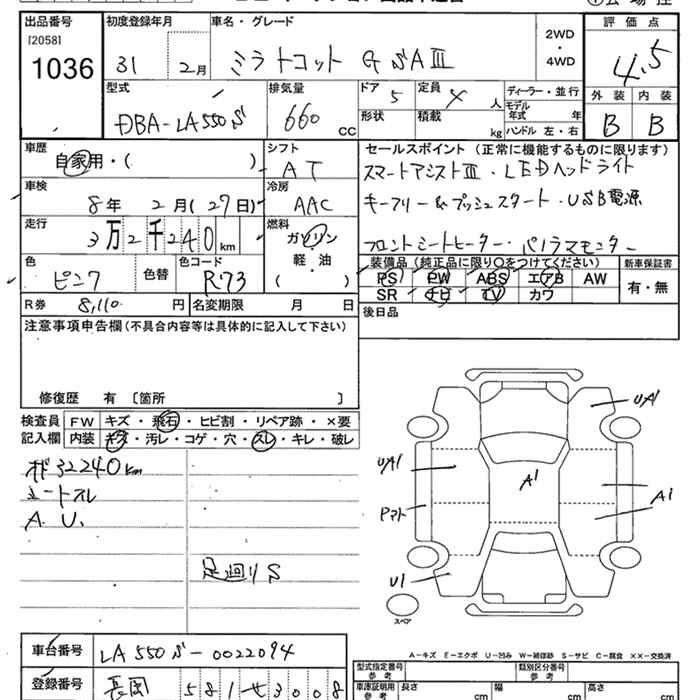 出品番号 初度登録年月 車名・グレード 評価点
[2058]
1036 31 2月 ミラトコット G SAⅢ 2WD・4WD 4.5
型式 排気量 ドア 5 定員 4 人 ディーラー・並行 外装 内装
DBA-LA550S 660 CC 形状 積載 kg モデル年式 年 ハンドル 左・右 B B
車歴 シフト セールスポイント (正常に機能するものに限ります)
自家用・( ) AT スマートアシストⅢ・LEDヘッドライト
車検 冷房
8年 2月(27日) AAC キーフリー&プッシュスタート・USB電源
走行 燃料
3万2千240km ガソリン フロントシートヒーター・パノラマモニター
色 色替 色コード 軽・油 装備品 (純正品に限り○をつけてください) 新車保証書
ピンク R73 ( ) PS PW ABS エアB AW 有・無
SR ナビ TV カワ
R券 8,110 円 名変期限 月 日 後日品
注意事項申告欄(不具合内容等は具体的に記入して下さい)
修復歴 有 〔箇所 〕
検査員 FW キズ・飛石・ヒビ割・リペア跡・×要
記入欄 内装 キズ・汚レ・コゲ・穴・スレ・キレ・破レ
オド32240km
シートスレ
A. U.
足廻りS
UA1
UA1
A1
A1
Pマト
U1
スペア
A-キズ E-エクボ U-凹み W-補修跡 S-サビ C-腐食 XX-交換済
車台番号 LA550S-0022094 型式指定番号 参考 類別区分番号 参考
登録番号 長岡 581せ3008 車庫証明用 参考 長さ cm 幅 cm 高さ cm